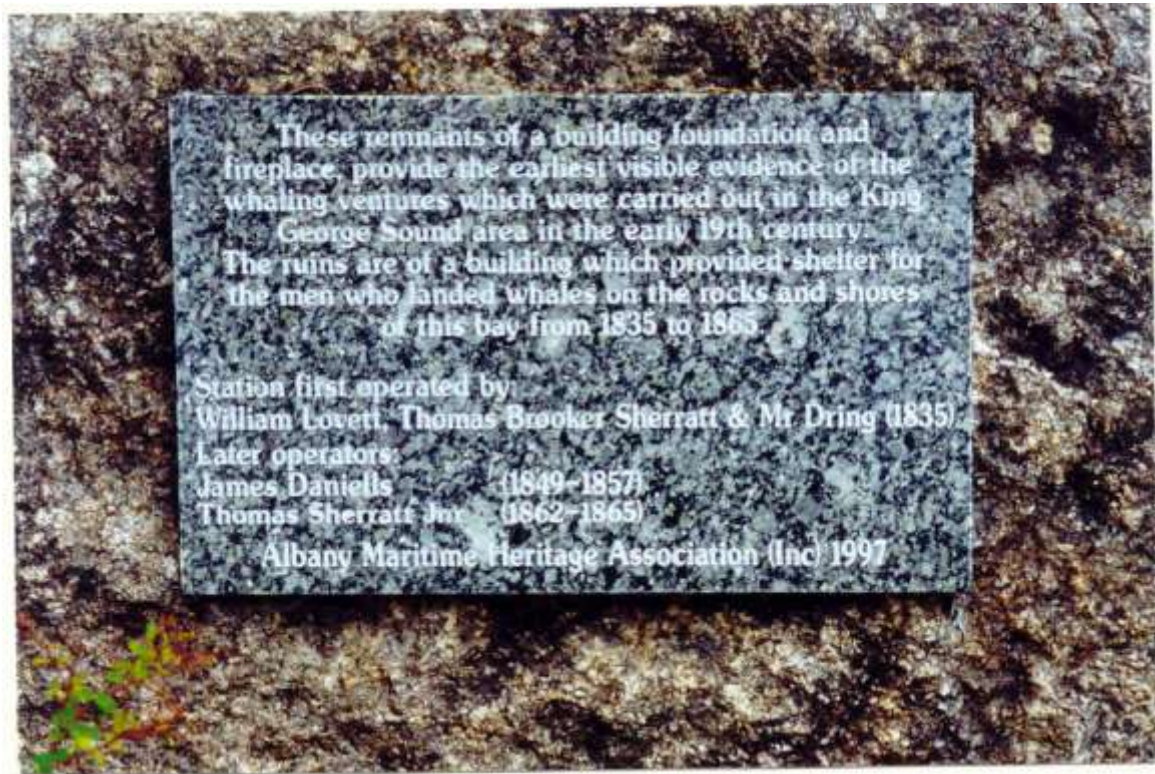 These remnants of a building foundation and
fireplace, provide the earliest visible evidence of the
whaling ventures which were carried out in the King
George Sound area in the early 19th century.
The ruins are of a building which provided shelter for
the men who landed whales on the rocks and shores
of this bay from 1835 to 1865.
Station first operated by:
William Lovett, Thomas Brooker Sherratt & Mr Dring (1835)
Later operators:
James Daniells (1849-1857)
Thomas Sherratt Jnr (1862-1865)
Albany Maritime Heritage Association (Inc) 1997